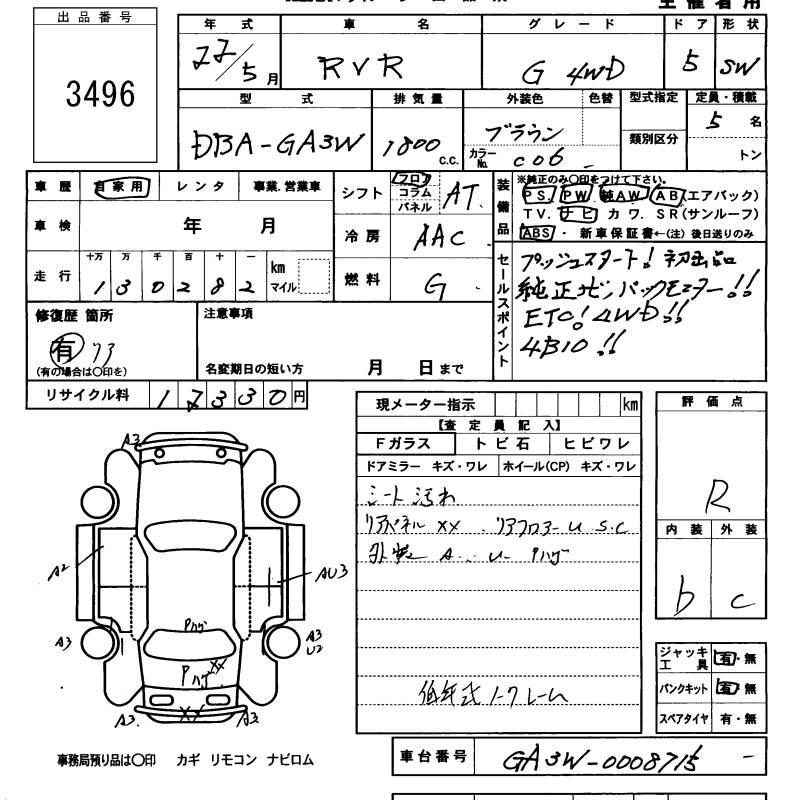 主催者用
出品番号
3496
年式 車名 グレード ドア 形状
22/5月 RVR G 4WD 5 SW
型式 排気量 外装色 色替 型式指定 定員・積載
DBA-GA3W 1800 c.c. ブラウン 5 名
カラーNo. C06 類別区分 トン
車歴 自家用 レンタ 事業.営業車 シフト フロア コラム パネル AT
車検 年 月 冷房 AAC
走行 十万 万 千 百 十 一 km マイル 燃料 G
1 3 0 2 8 2
装備品 ※純正のみ○印をつけて下さい。
PS. PW. 純AW. AB(エアバック)
TV. ナビ カワ. SR(サンルーフ)
ABS・ 新車保証書←(注)後日送りのみ
セールスポイント
プッシュスタート! 初出品
純正ナビ,バックモニター!!
ETC! 4WD!!
4B10!!
修復歴 箇所 注意事項
有 リア
(有の場合は○印を) 名変期日の短い方 月 日まで
リサイクル料 1 2 3 3 0 円
現メーター指示 km
【査定員記入】
Fガラス トビ石 ヒビワレ
ドアミラー キズ・ワレ ホイール(CP) キズ・ワレ
シート汚れ
リアパネルXX . リアフロアーU S.C
外装 A... U- Pハゲ
低年式ノークレーム
評価点
R
内装 外装
b c
A3
A2
AU3
A3
Pハゲ
A3
U2
Pハゲ XX
A3 XX A3
ジャッキ工具 有・無
パンクキット 有・無
スペアタイヤ 有・無
事務局預り品は○印 カギ リモコン ナビロム
車台番号 GA3W-0008715 -